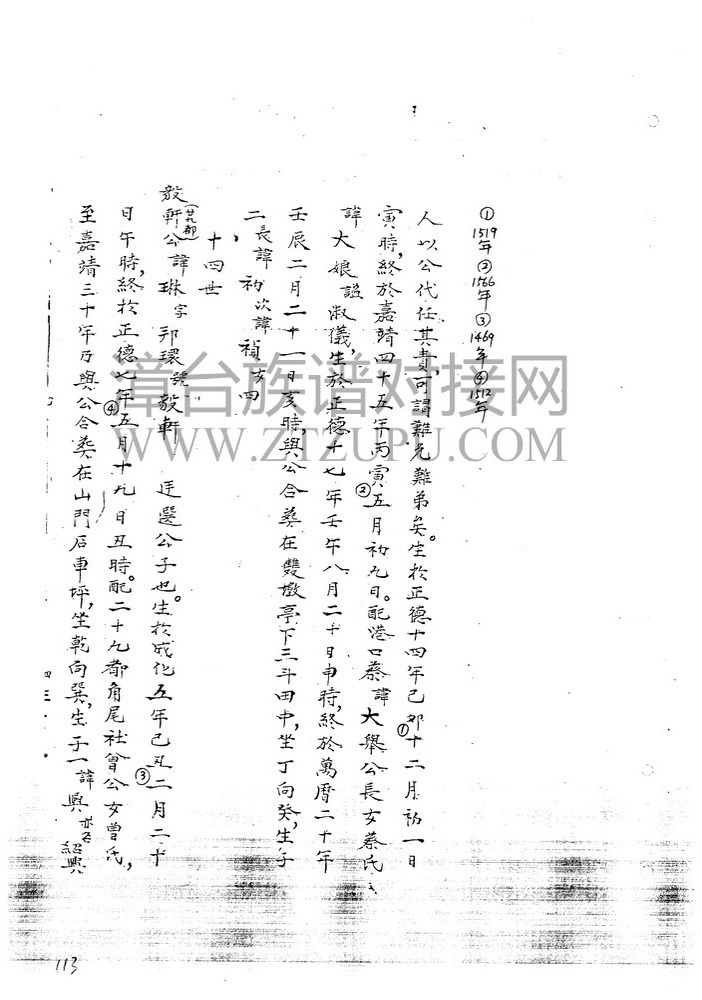 ①1519年②1566年③1469年④1512年
人以公代任其責,可謂難兄難弟矣。生於正德十四年己卯①十二月初一日
寅時,終於嘉靖四十五年丙寅②五月初九日。配港口蔡諱大舉公長女蔡氏,
諱大娘謚淑儀,生於正德十七年壬午八月二十日申時,終於萬曆二十年
壬辰二月二十一日亥時,與公合葬在雙墩亭下三斗田中,坐丁向癸,生子
二長諱初次諱禎女四
十四世
毅軒公諱琳字邦環號毅軒 廷選公子也。生於成化五年己丑③二月二十
日午時,終於正德七年④五月十九日丑時。配二十九都角尾社曾公女曾氏,
至嘉靖三十年乃與公合葬在山門后車坪,坐乾向巽,生子一諱興亦名紹興
漳台族谱对接网
WWW.ZTZUPU.COM
四三
113